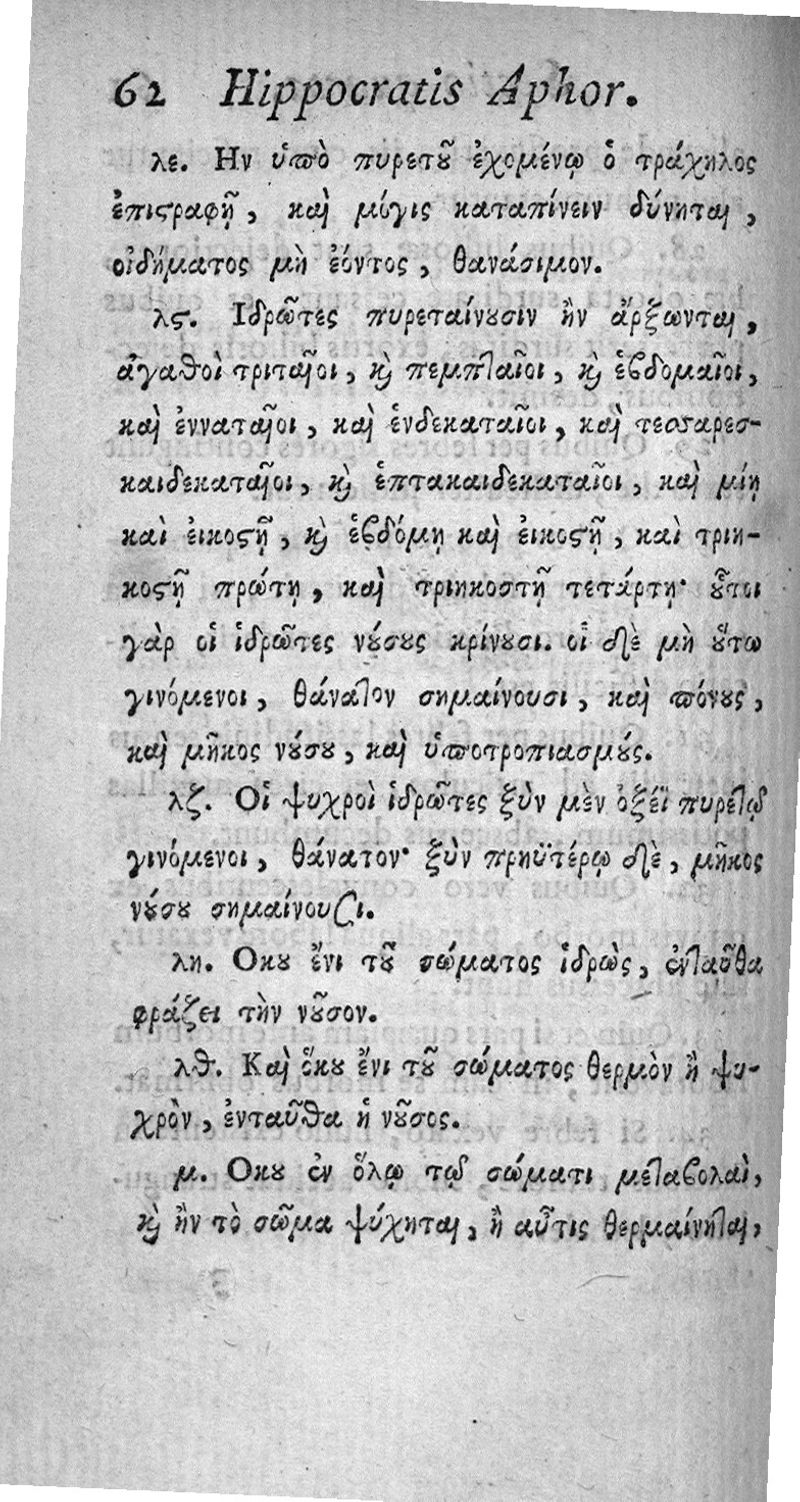 62 Hippocratis Aphor.
λε. Ην ὑπὸ πυρετȣ͂ ἐχομένῳ ὁ τράχηλος
ἐπιϛραφῇ, καὶ μόγις καταπίνειν δύνηται,
οἰδήματος μὴ ἐόντος, θανάσιμον.
λϛ. Ιδρῶτες πυρεταίνȣσιν ἢν ἄρξωνται,
ἀγαθοὶ τριταῖοι, ϗ πεμπταῖοι, ϗ ἑβδομαῖοι,
καὶ ἐνναταῖοι, καὶ ἑνδεκαταῖοι, καὶ τεσσαρεσ-
καιδεκαταῖοι, ϗ ἑπτακαιδεκαταῖοι, καὶ μίῃ
καὶ εἰκοϛῇ, ϗ ἑβδόμῃ καὶ εἰκοϛῇ, καὶ τριη-
κοϛῇ πρώτῃ, καὶ τριηκοστῇ τετάρτῃ· ȣ̃τοι
γὰρ οἱ ἱδρῶτες νȣ́σȣς κρίνȣσι. οἱ δὲ μὴ ȣ̔́τω
γινόμενοι, θάνατον σημαίνουσι, καὶ πόνȣς,
καὶ μῆκος νȣ́σȣ, καὶ ὑποτροπιασμȣ́ς.
λζ. Οἱ ψυχροὶ ἱδρῶτες ξὺν μὲν ὀξέϊ πυρετῷ
γινόμενοι, θάνατον· ξὺν πρηϋτέρῳ δὲ, μῆκος
νȣ́σȣ σημαίνουσι.
λη. Οκȣ ἔνι τȣ͂ σώματος ἱδρὼς, ἐνταῦθα
φράζει τὴν νȣ͂σον.
λθ. Καὶ ὅκȣ ἔνι τȣ͂ σώματος θερμὸν ἢ ψυ-
χρὸν, ἐνταῦθα ἡ νȣ͂σος.
μ. Οκȣ ἐν ὅλῳ τῷ σώματι μεταβολαὶ,
ϗ ἢν τὸ σῶμα ψύχηται, ἢ αὖτις θερμαίνηται,